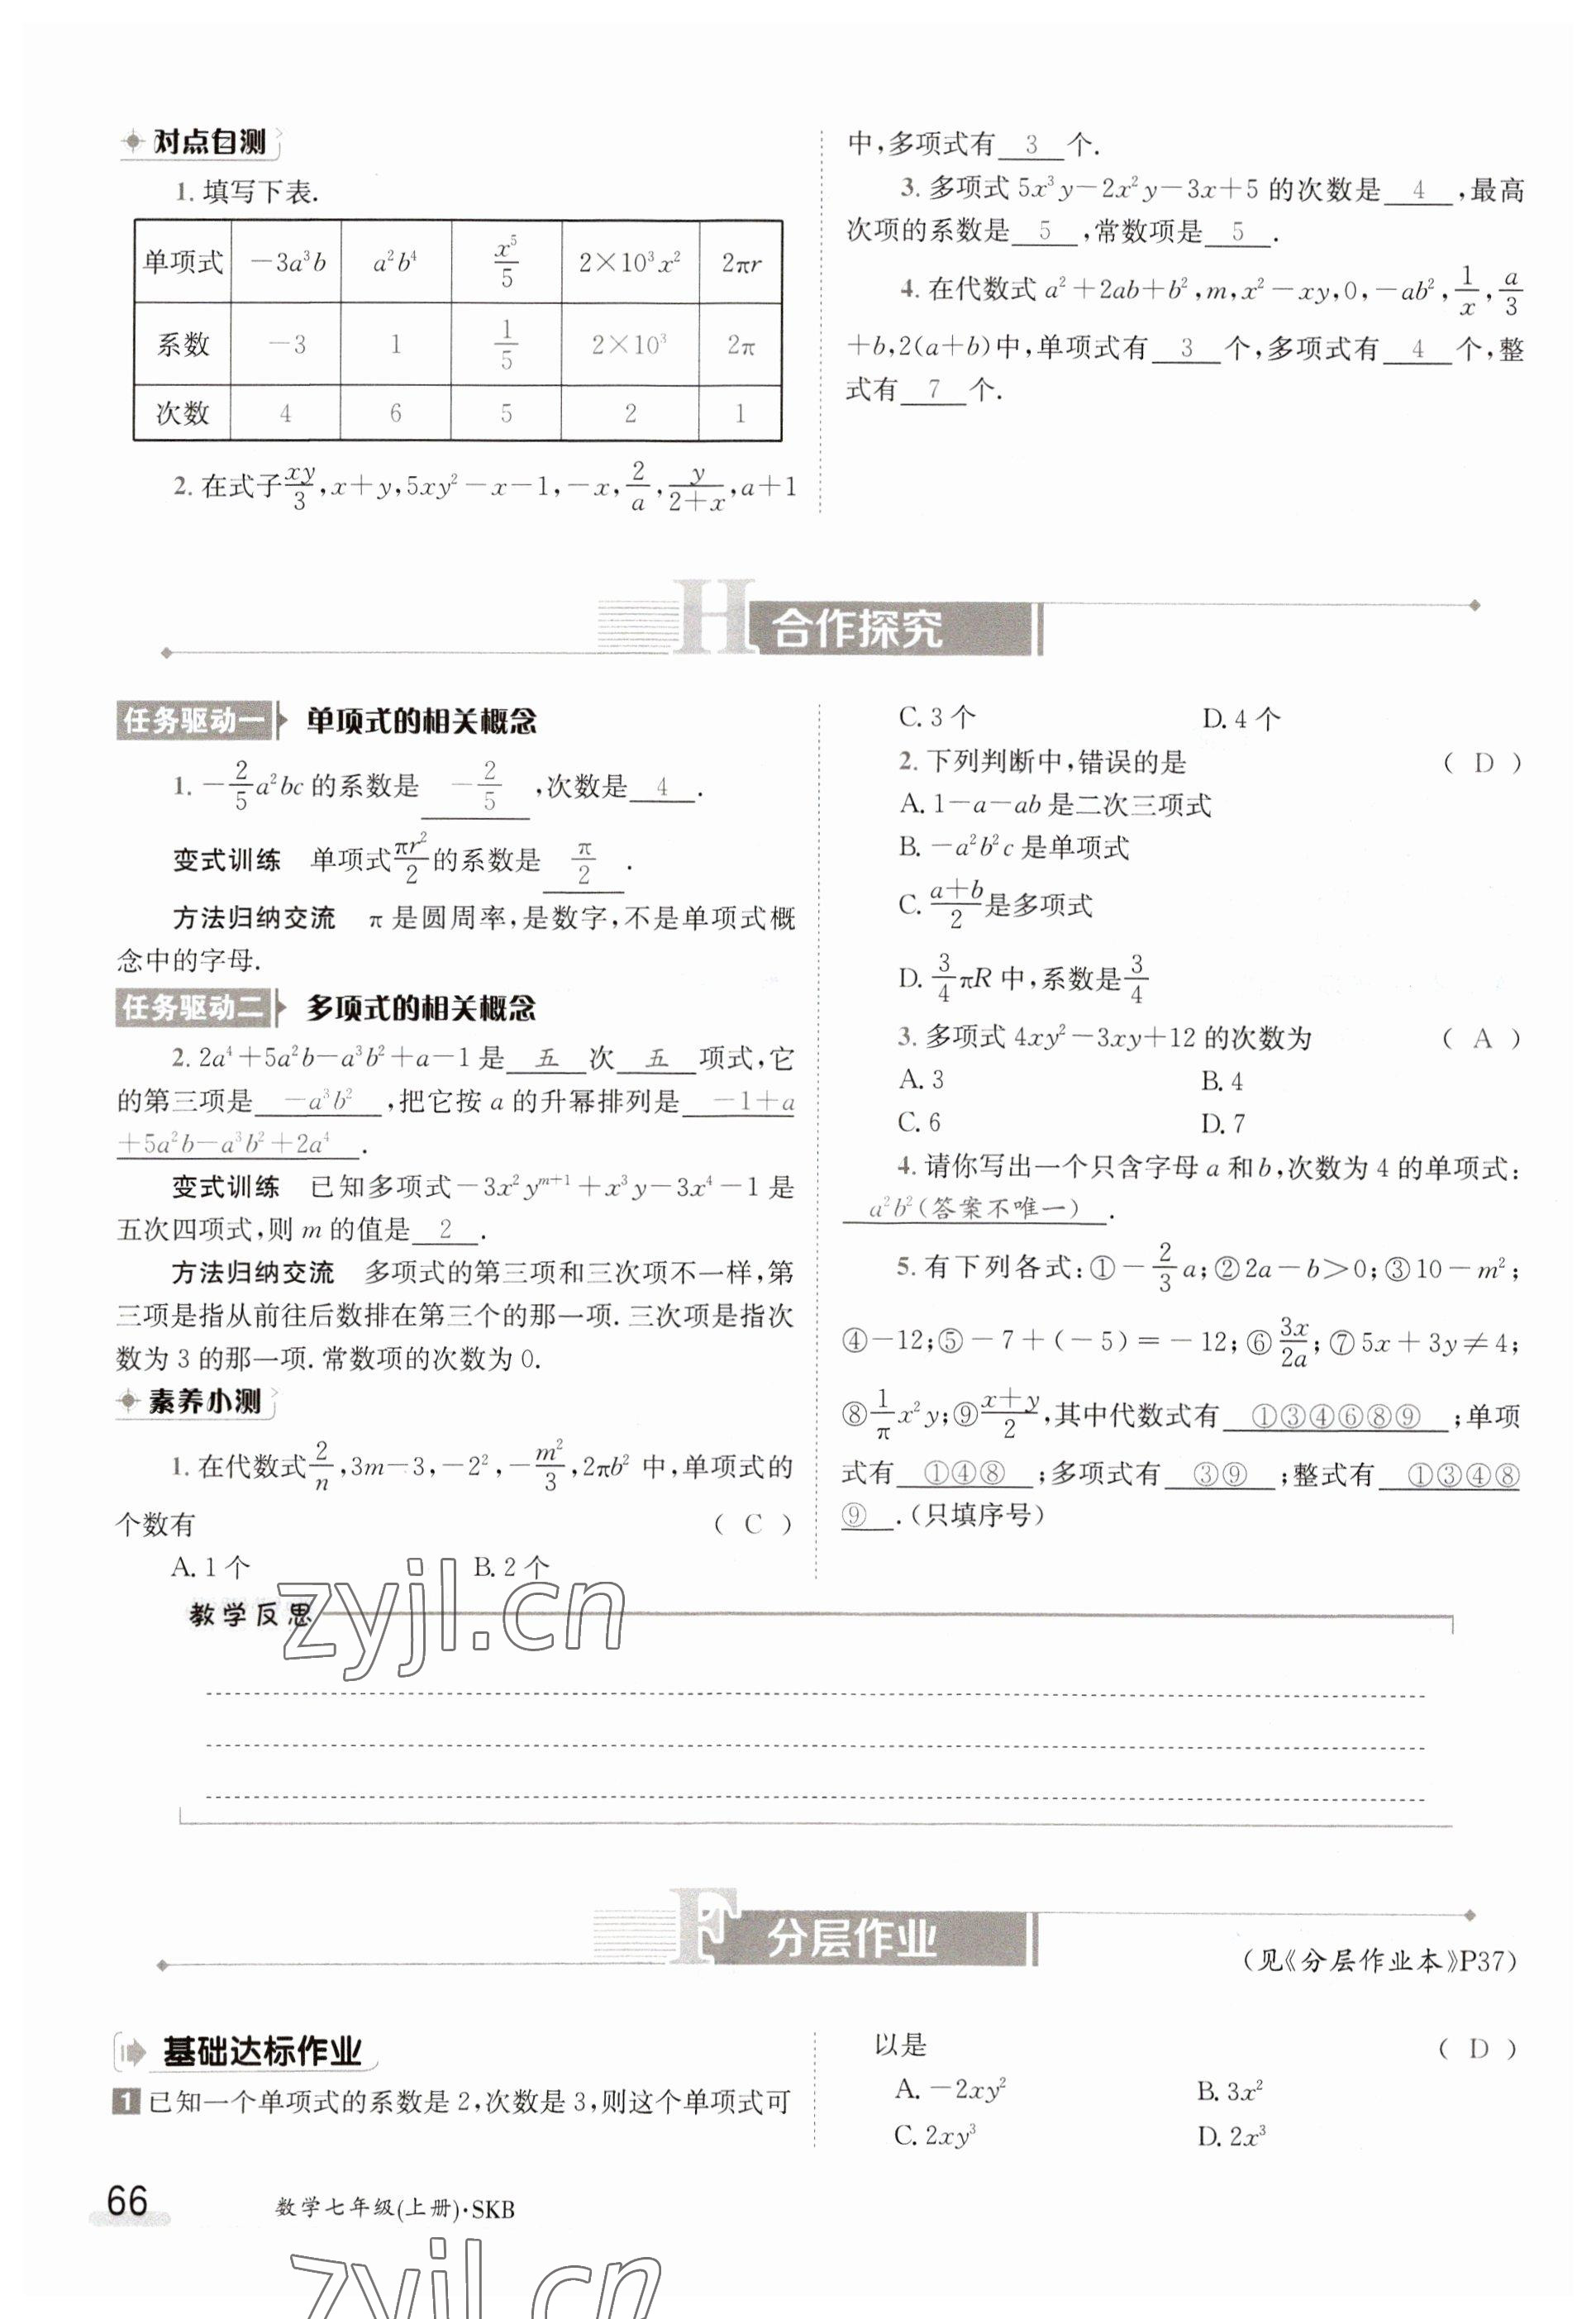 对点自测
1. 填写下表.
单项式 －3a³b a²b⁴ x⁵/5 2×10³x² 2πr
系数 －3 1 1/5 2×10³ 2π
次数 4 6 5 2 1
2. 在式子xy/3,x＋y,5xy²－x－1,－x,2/a,y/(2＋x),a＋1
中,多项式有 3 个.
3. 多项式 5x³y－2x²y－3x＋5 的次数是 4 ,最高
次项的系数是 5 ,常数项是 5 .
4. 在代数式 a²＋2ab＋b²,m,x²－xy,0,－ab²,1/x,a/3
＋b,2(a＋b)中,单项式有 3 个,多项式有 4 个,整
式有 7 个.
H 合作探究
任务驱动一 单项式的相关概念
1. －2/5a²bc 的系数是 －2/5 ,次数是 4 .
变式训练 单项式πr²/2的系数是 π/2 .
方法归纳交流 π 是圆周率,是数字,不是单项式概
念中的字母.
任务驱动二 多项式的相关概念
2. 2a⁴＋5a²b－a³b²＋a－1 是 五 次 五 项式,它
的第三项是 －a³b² ,把它按 a 的升幂排列是 －1＋a
＋5a²b－a³b²＋2a⁴ .
变式训练 已知多项式－3x²yᵐ⁺¹＋x³y－3x⁴－1 是
五次四项式,则 m 的值是 2 .
方法归纳交流 多项式的第三项和三次项不一样,第
三项是指从前往后数排在第三个的那一项. 三次项是指次
数为 3 的那一项. 常数项的次数为 0.
素养小测
1. 在代数式2/n,3m－3,－2²,－m²/3,2πb² 中,单项式的
个数有 ( C )
A. 1 个 B. 2 个
C. 3 个 D. 4 个
2. 下列判断中,错误的是 ( D )
A. 1－a－ab 是二次三项式
B. －a²b²c 是单项式
C. (a＋b)/2是多项式
D. 3/4πR 中,系数是3/4
3. 多项式 4xy²－3xy＋12 的次数为 ( A )
A. 3 B. 4
C. 6 D. 7
4. 请你写出一个只含字母 a 和 b,次数为 4 的单项式:
a²b²(答案不唯一) .
5. 有下列各式:①－2/3a;②2a－b＞0;③10－m²;
④－12;⑤－7＋(－5)＝－12;⑥3x/2a;⑦5x＋3y≠4;
⑧1/πx²y;⑨(x＋y)/2,其中代数式有 ①③④⑥⑧⑨ ;单项
式有 ①④⑧ ;多项式有 ③⑨ ;整式有 ①③④⑧
⑨ .(只填序号)
教学反思
zyjl.cn
F 分层作业
(见《分层作业本》P37)
基础达标作业
1 已知一个单项式的系数是 2,次数是 3,则这个单项式可
以是 ( D )
A. －2xy² B. 3x²
C. 2xy³ D. 2x³
66 数学七年级(上册)·SKB
zyjl.cn